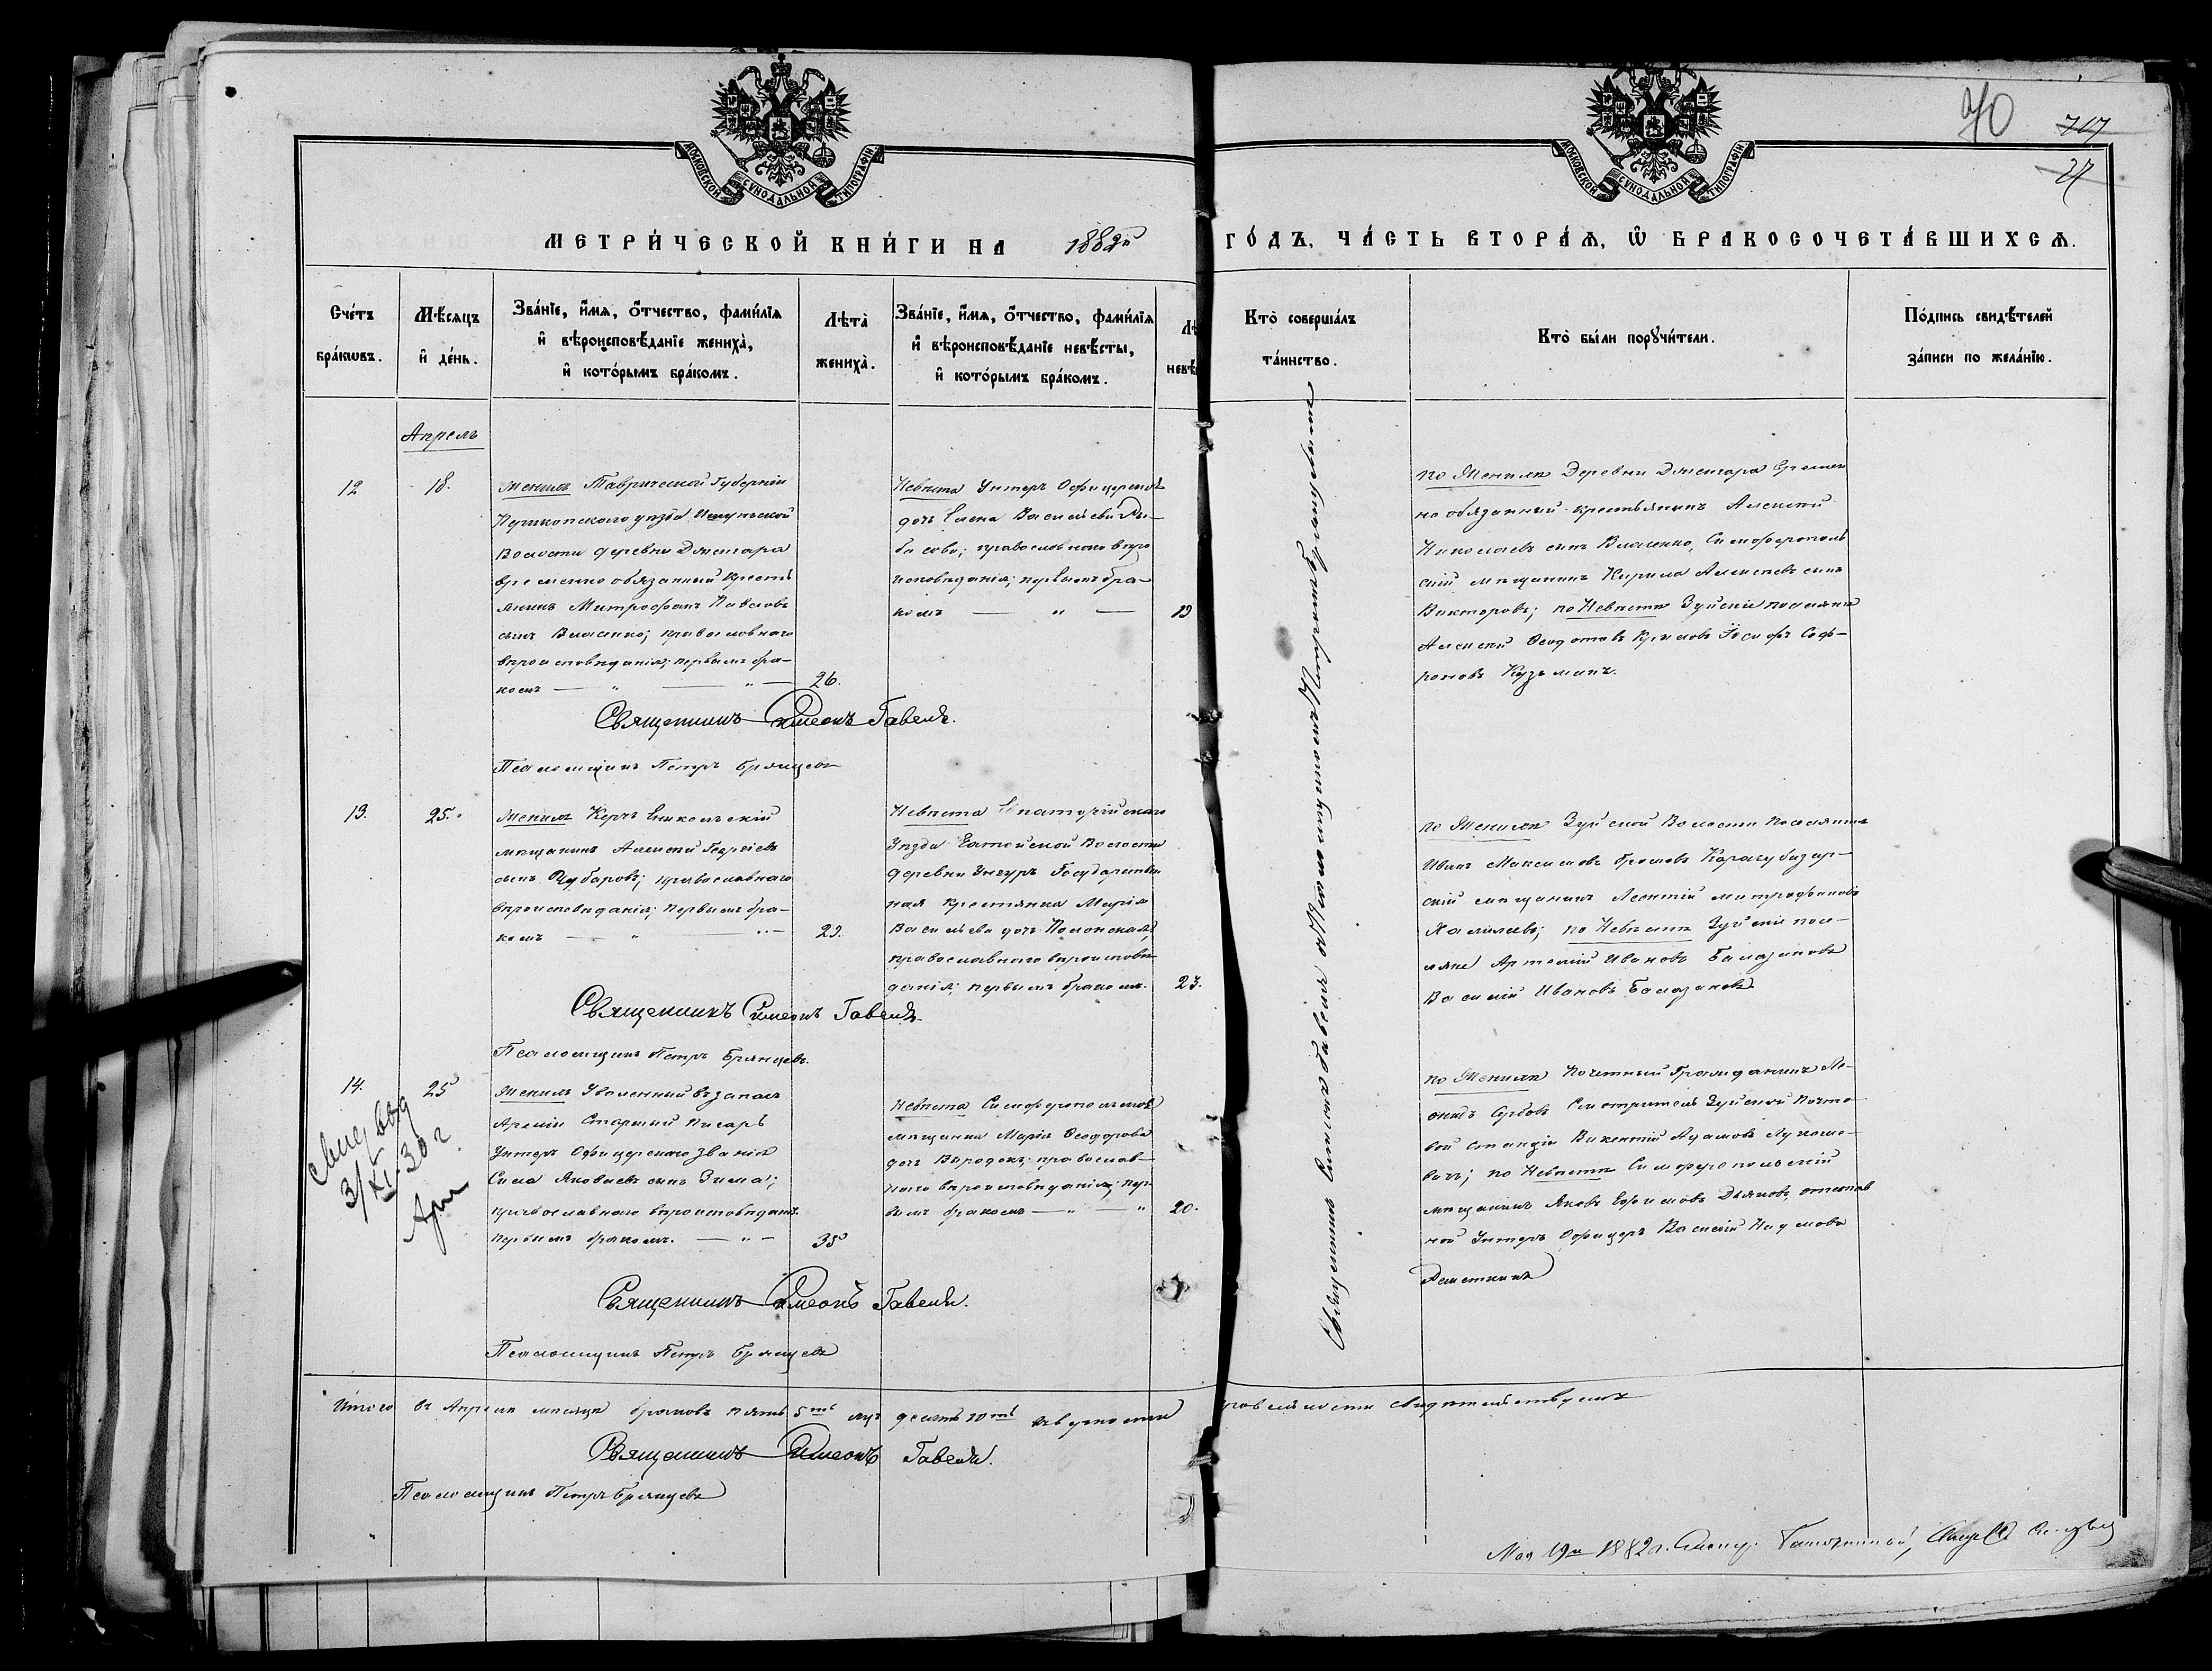 70
717
27
МОСКОВСКОЙ СѴНОДАЛЬНОЙ ТИПОГРАФІИ
МОСКОВСКОЙ СѴНОДАЛЬНОЙ ТИПОГРАФІИ
МЕТРИ́ЧЕСКОЙ КНИ́ГИ НА 1882й ГО́ДЪ, ЧА́СТЬ ВТОРА́Ѧ, Ѽ БРАКОСОЧЕТА́ВШИХСѦ.
Сче́тъ
бра́кѡвъ.
Мѣ́сяцъ
и҆ де́нь.
Зва́нїе, и҆́мѧ, о҆́тчество, фами́лїѧ
и҆ вѣроисповѣ́данїе жениха̀,
и҆ кото́рымъ бра́комъ.
Лѣта̀
жениха̀.
Зва́нїе, и҆́мѧ, о҆́тчество, фами́лїѧ
и҆ вѣроисповѣ́данїе невѣ́сты,
и҆ кото́рымъ бра́комъ.
Лѣ
невѣ
Кто̀ соверша́лъ
та́инство.
Кто̀ бы́ли порꙋчи́тели.
По́дпись свидѣ́телей
за́писи по жела́нїю.
Апрель
12
18.
Женихъ Таврической Губерніи
Перекопскаго уѣзда Ишунской
Волости деревни Джигара
временно обязанный кресть
янинъ Митрофанъ Павловъ
сынъ Власенко; православнаго
вѣроисповѣданія; первымъ бра-
комъ — " — " —
26.
Невѣста Унтеръ Офицерская
дочь Елена Васильева Ры-
басова; православнаго вѣро
исповѣданія; первымъ бра-
комъ — " —
19
по Женихѣ Деревни Джигара Времен
но обязанный крестьянинъ Алексей
Николаевъ сынъ Власенко, Симферополь
скій мѣщанинъ Кирила Алексеевъ сынъ
Викторовъ; по Невѣстѣ Зуйскіе поселяне
Алексей Ѳеодотовъ Крымовъ Іосифъ Соф-
роновъ Кузьминъ.
Священникъ Симеонъ Гавель.
Псаломщикъ Петръ Брянцевъ
13.
25.
Женихъ Керчь Еникольскій
мѣщанинъ Алексей Георгіевъ
сынъ Чубаровъ; православнаго
вѣроисповѣданія; первымъ бра-
комъ — " — " —
29.
Невѣста Евпаторійскаго
Уѣзда
Волости
деревни Унгуръ Государствен
ная крестьянка Марія
Васильева дочь Полонская;
православнаго вѣроисповѣ
данія; первымъ бракомъ.
23.
по Женихѣ Зуйской Волости поселянинъ
Иванъ Максимовъ Громовъ Карасубазар-
скій мѣщанинъ Леонтій Митрофановъ
по Невѣстѣ Зуйскіе посе-
ляне Артемій Ивановъ Балазановъ
Василій Ивановъ Балазановъ
Священникъ Симеонъ Гавель.
Псаломщикъ Петръ Брянцевъ.
14.
25
3/XI 30 г.
Женихъ Уволенный въ запасъ
Арміи Старшій Писарь
Унтеръ Офицерскаго званія
Сила Яковлевъ сынъ Зима;
православнаго вѣроисповѣданія
первымъ бракомъ. — " —
35
Невѣста Симферопольская
мѣщанка Марія Ѳеодорова
дочь Выродокъ; православ-
наго вѣроисповѣданія; пер-
вымъ бракомъ — " — "
20.
по Женихѣ Почетный Гражданинъ Ле-
онидъ Сербовъ Смотритель Зуйской Почто-
вой станціи Викентій Адамовъ Лукаше-
вичъ; по Невѣстѣ Симферопольскій
мѣщанинъ Яковъ Ефимовъ Дьяковъ, отстав
ной Унтеръ Офицеръ Василій Наумовъ
Решеткинъ
Священникъ Симеонъ Гавель.
Псаломщикъ Петръ Брянцевъ
Священникъ Симеонъ Гавель
Итого въ Апрелѣ месяцѣ браковъ пять 5ть лицъ десять 10ть
свидѣтельствуемъ
Священникъ Симеонъ Гавель.
Псаломщикъ Петръ Брянцевъ
Мая 19го 1882 г.